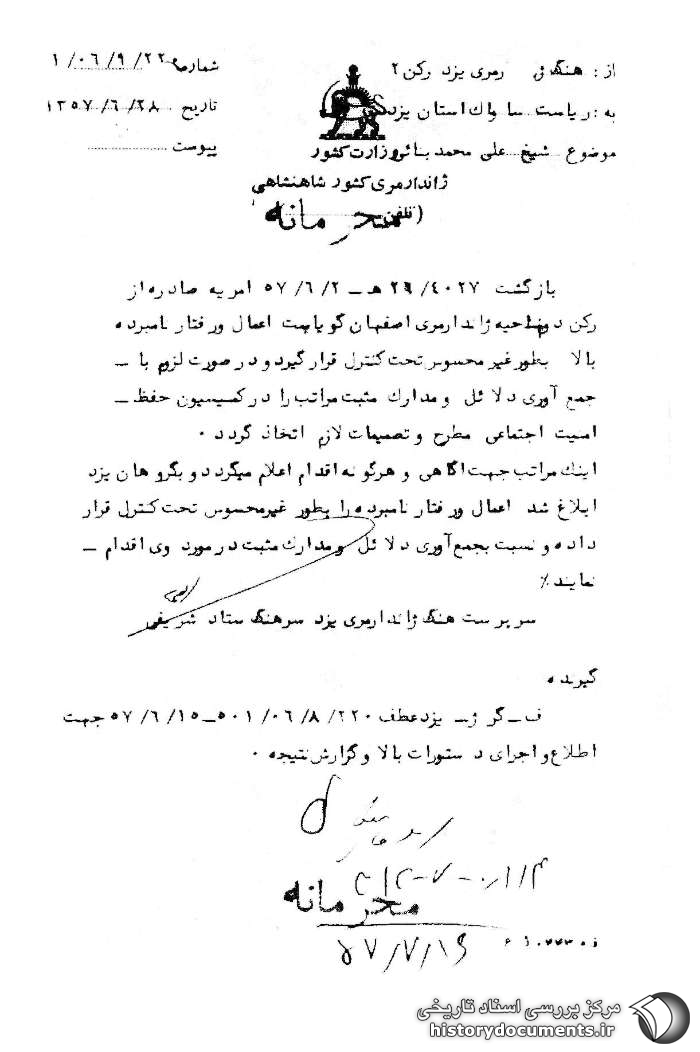 از : هنگ ژ رمری یزد رکن ۲
شماره ۱/۰۶/۹/۲۲۰
به : ریاست ساواک استان یزد
تاریخ ۱۳۵۷/۶/۲۸
موضوع شیخ علی محمد
وزارت کشور
پیوست
ژاندارمری کشور شاهنشاهی
(تلفن
محرمانه
بازگشت ۲۹/۴۰۲۷ هـ ـ ۵۷/۶/۲ امریه صادره از
رکن دوناحیه ژاندارمری اصفهان گویاست اعمال ورفتار نامبرده
بالا بطور غیر محسوس تحت کنترل قرار گیرد و در صورت لزوم با ـ
جمع آوری دلائل و مدارک مثبت مراتب را در کمیسیون حفظ ـ
امنیت اجتماعی مطرح و تصمیمات لازم اتخاذ گردد .
اینک مراتب جهت آگاهی و هرگونه اقدام اعلام میگردد و بگروهان یزد
ابلاغ شد اعمال ورفتار نامبرده را بطور غیرمحسوس تحت کنترل قرار
داده و نسبت بجمع آوری دلائل ومدارک مثبت در مورد وی اقدام ـ
نمایند ٪
سرپرست هنگ ژاندارمری یزد سرهنگ ستاد شریفی
گیرنده
ف ـ گر ژ ـ یزد عطف ۵۰۱/۰۶/۸/۲۲۰ ـ ۵۷/۶/۱۵ جهت
اطلاع و اجرای دستورات بالا و گزارش نتیجه .
محرمانه
۵۷/۷/۱۶
مرکز بررسی اسناد تاریخی
historydocuments.ir